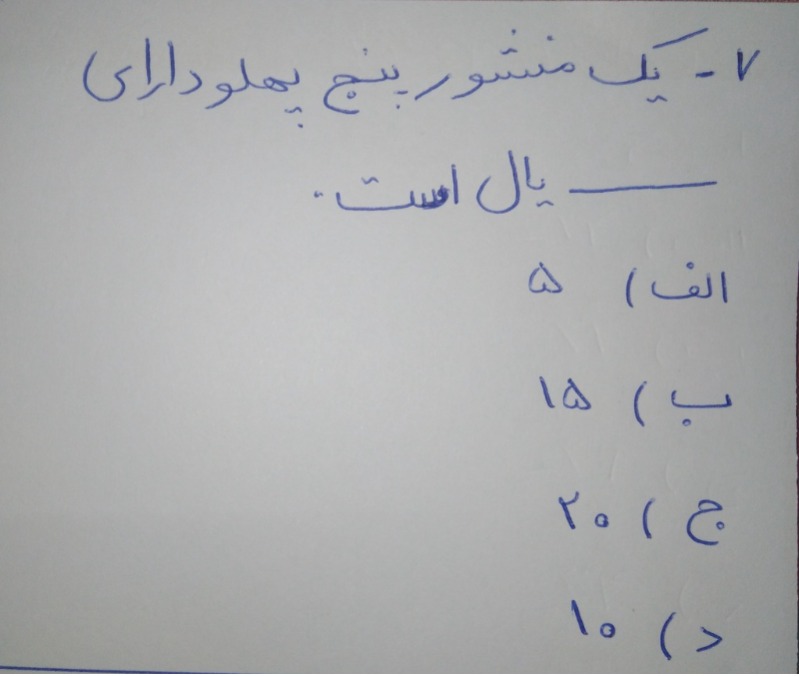 ۷- یک منشور پنج پهلو دارای
ــــــ یال است.
الف) ۵
ب) ۱۵
ج) ۲۰
د) ۱۰